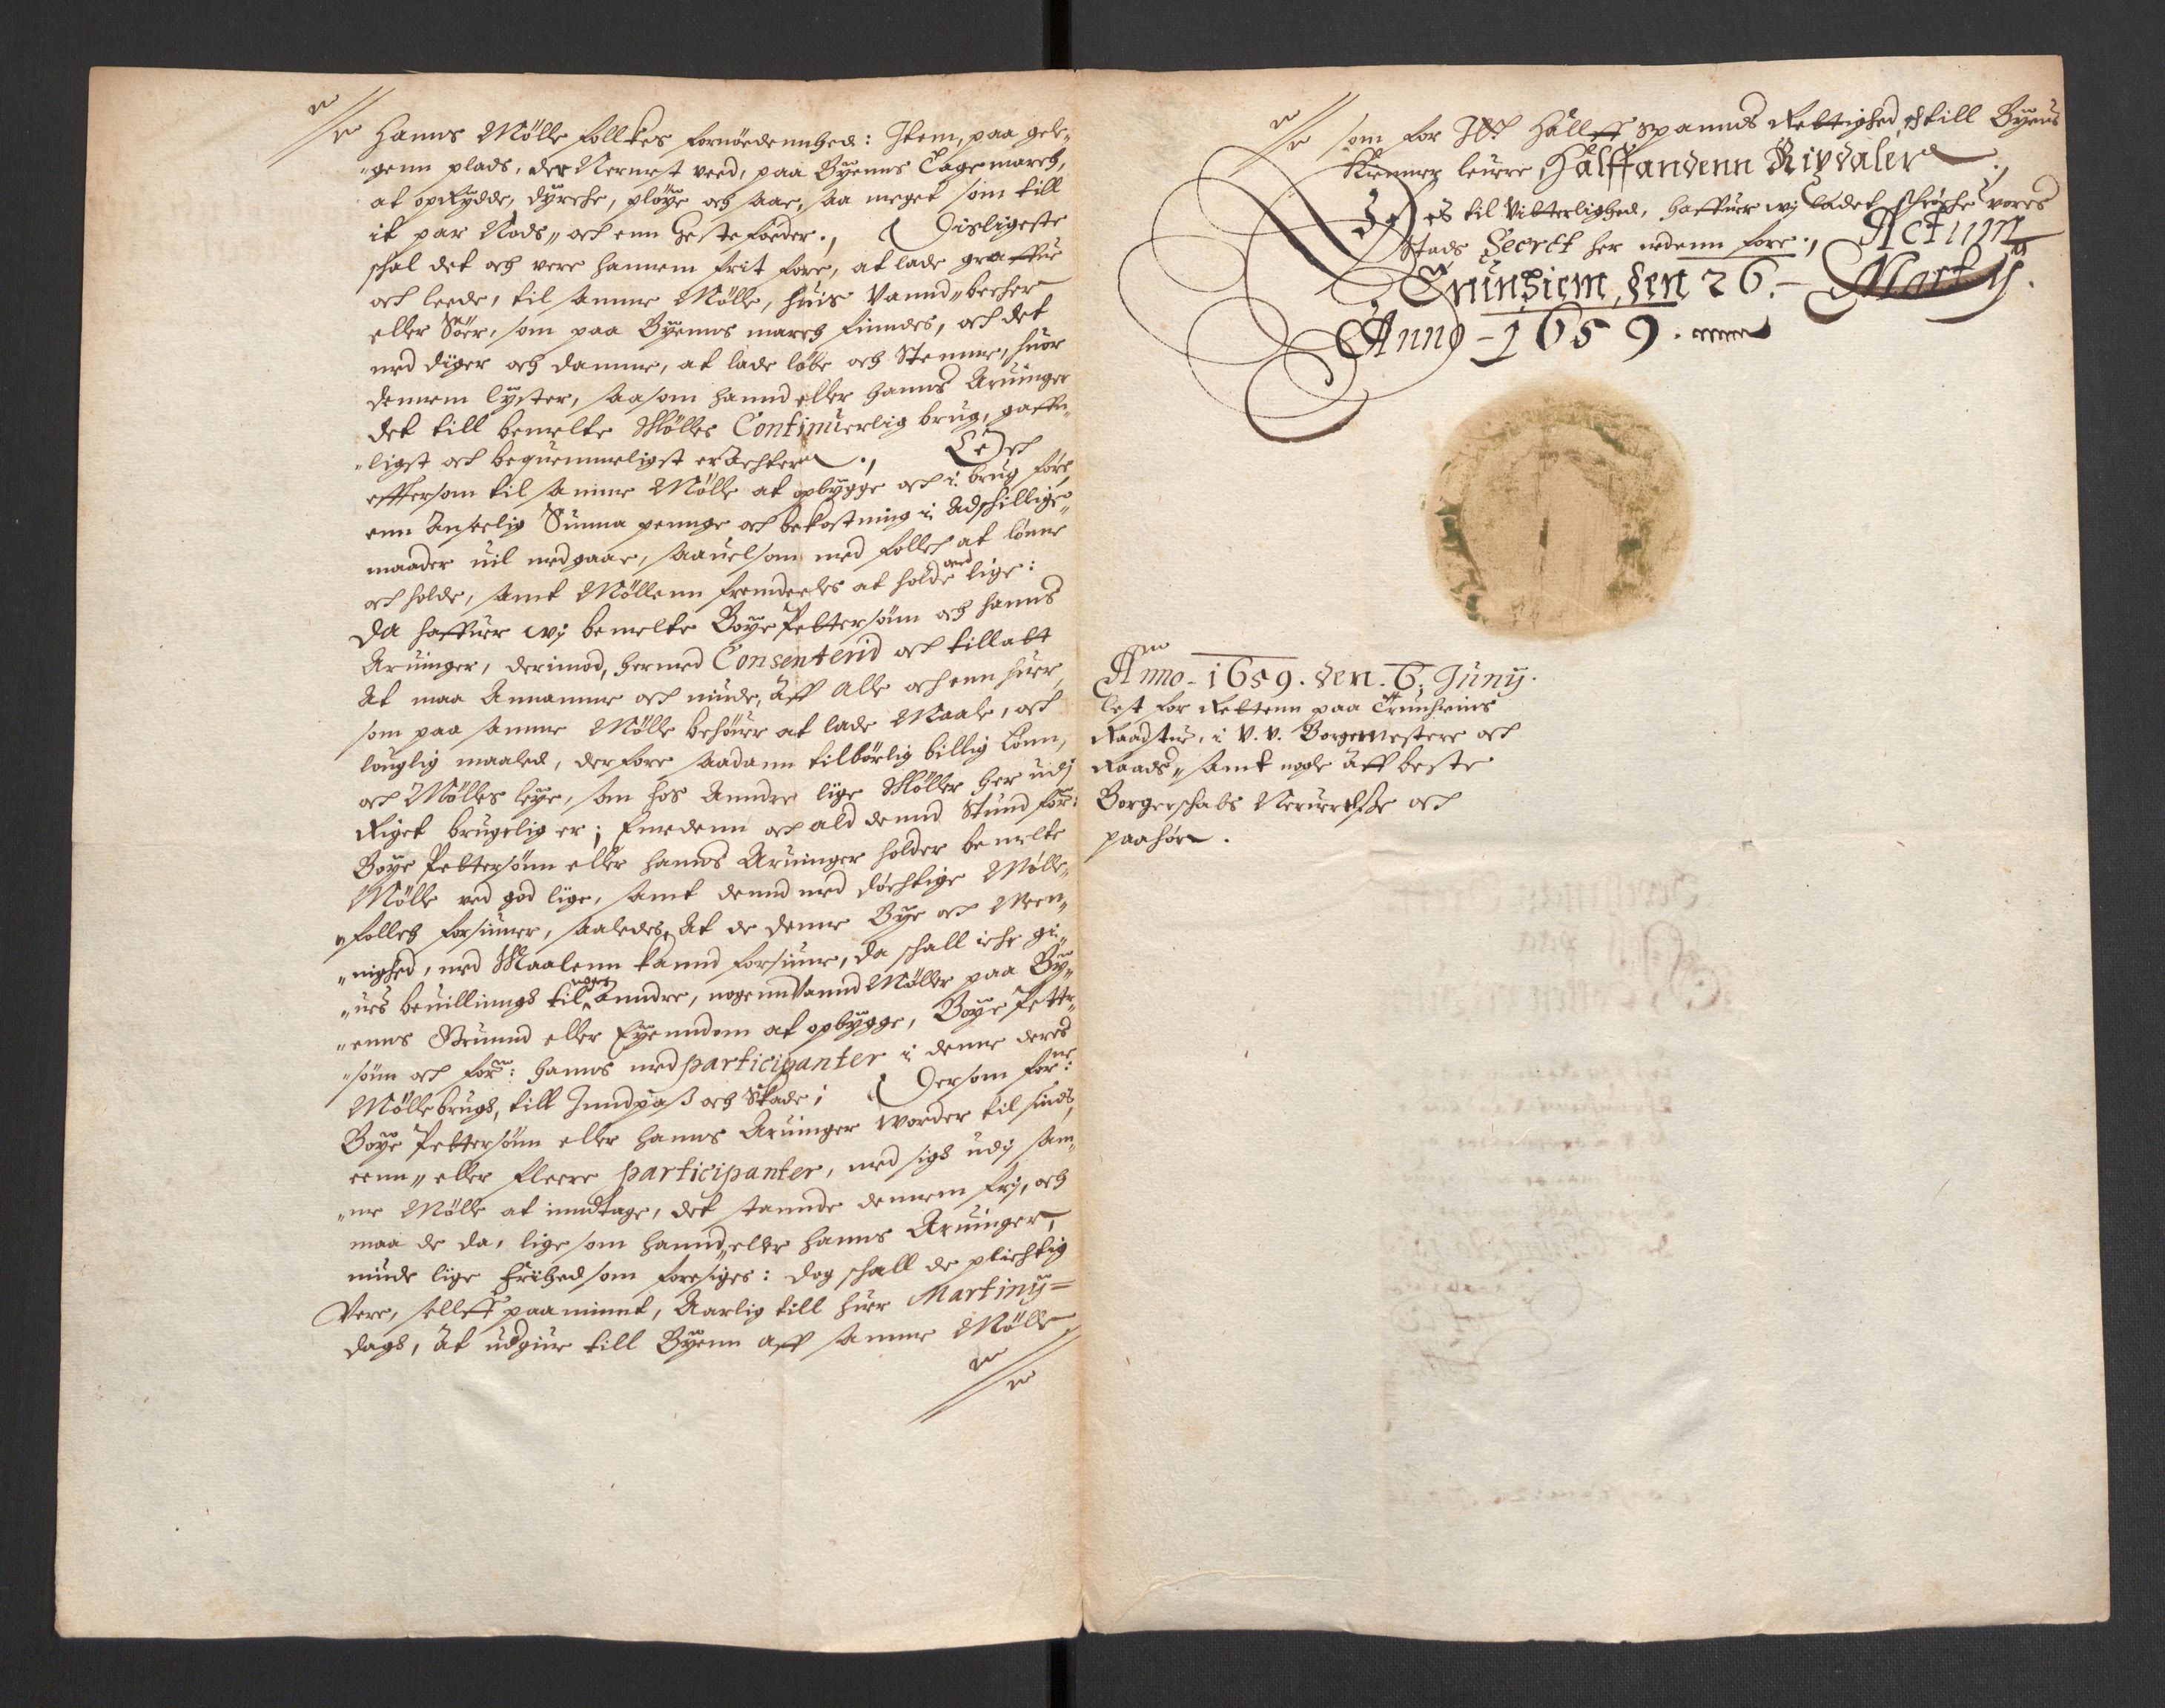 hanns Mölle folkes fornöedennhed: Item, paa gele-
"genn plads, der Nermest veed, paa Byenns Tagemarch,
at oprydde, dyrche, pløye och saae, saa meget som till
it par Nöds, och enn Heste foeder., Disligeste
schal det och vere hannem frit fore, at lade graffue
och leede, til samme Mölle, huis Vannd, becher
eller Söer, som paa Byenns march findes, och det
med diger och damme, at lade løbe och Stemme, huor
dennem lyster, saasom hannd eller hanns Aruinger
det till bemelte Mölles Continuerlig brug, gaffn-
"ligst och beqvemmeligst eracter., Och
efftersom til samme Mölle at opbygge och i brug føre,
enn Anseelig Summa pennge och bekostning i Adschillige
maader uil medgaae, saauelsom med folch at lønne
och holde, samt Möllenn fremdeeles at holde ved lige:
Da haffuer wj bemelte Boye Pettersönn och hanns
Aruinger, derimod, hermed Consenterid och tilladt
At maa Annamme och niude, aff Alle och enn huer,
som paa samme Mölle behöuer at lade Maale, och
louglig maaled, derfore saadann tilbørlig billig Lönn,
och Mölles leye, som hos Anndre lige Möller her udj
Riget brugelig er; Emedenn och ald dennd Stund for:
Boye Pettersönn eller hanns Aruinger holder bemelte
Mölle ved god lige, samt dennd med døchtige Mölle-
"folch forsiuner, saaledes At de denne Bye och Meen-
"nighed, med Maalenn kannd forsiune, da schall iche gi-
"ues beuillinngs til nogen Anndre, nogenn Vannd Möller paa By-
"enns Grunnd eller Eyenndom at opbygge, Boye Petter-
"sönn och for: hanns medparticipanter i denne deres
Möllebrugs, till Inndpas och Skade; Dersom for:
Boye Pettersönn eller hanns Aruinger worder til sinds,
eenn, eller fleere participanter, med sigs udj sam-
"me Mölle at inndtage, det stannde dennem frj, och
maa de da, lige som hannd, eller hanns Aruinger,
niude lige frihed som foresiges: dog schall de plichtig
Vere, sellff paaminnt, Aarlig till huer Martiny=
dags, At udgiue till Byenn aff samme Mölle
som for It Hallff Spannds Rettighed, till Byens
Kiemner leuere Halffandenn Rixdaler.,
Dis til Vitterlighed, haffuer wj ladet thryche vores
Stads Secret her nedenn fore., Actum
Trundhiem, den 26. Marty.
Anno 1659.
Anno 1659. den 6. Juny.
lest for Rettenn paa Trunhiems
Raadstue, i V. V. Borgemestere och
Raads, samt nogle aff beste
Borgerschabs Neruerelse och
paahør.